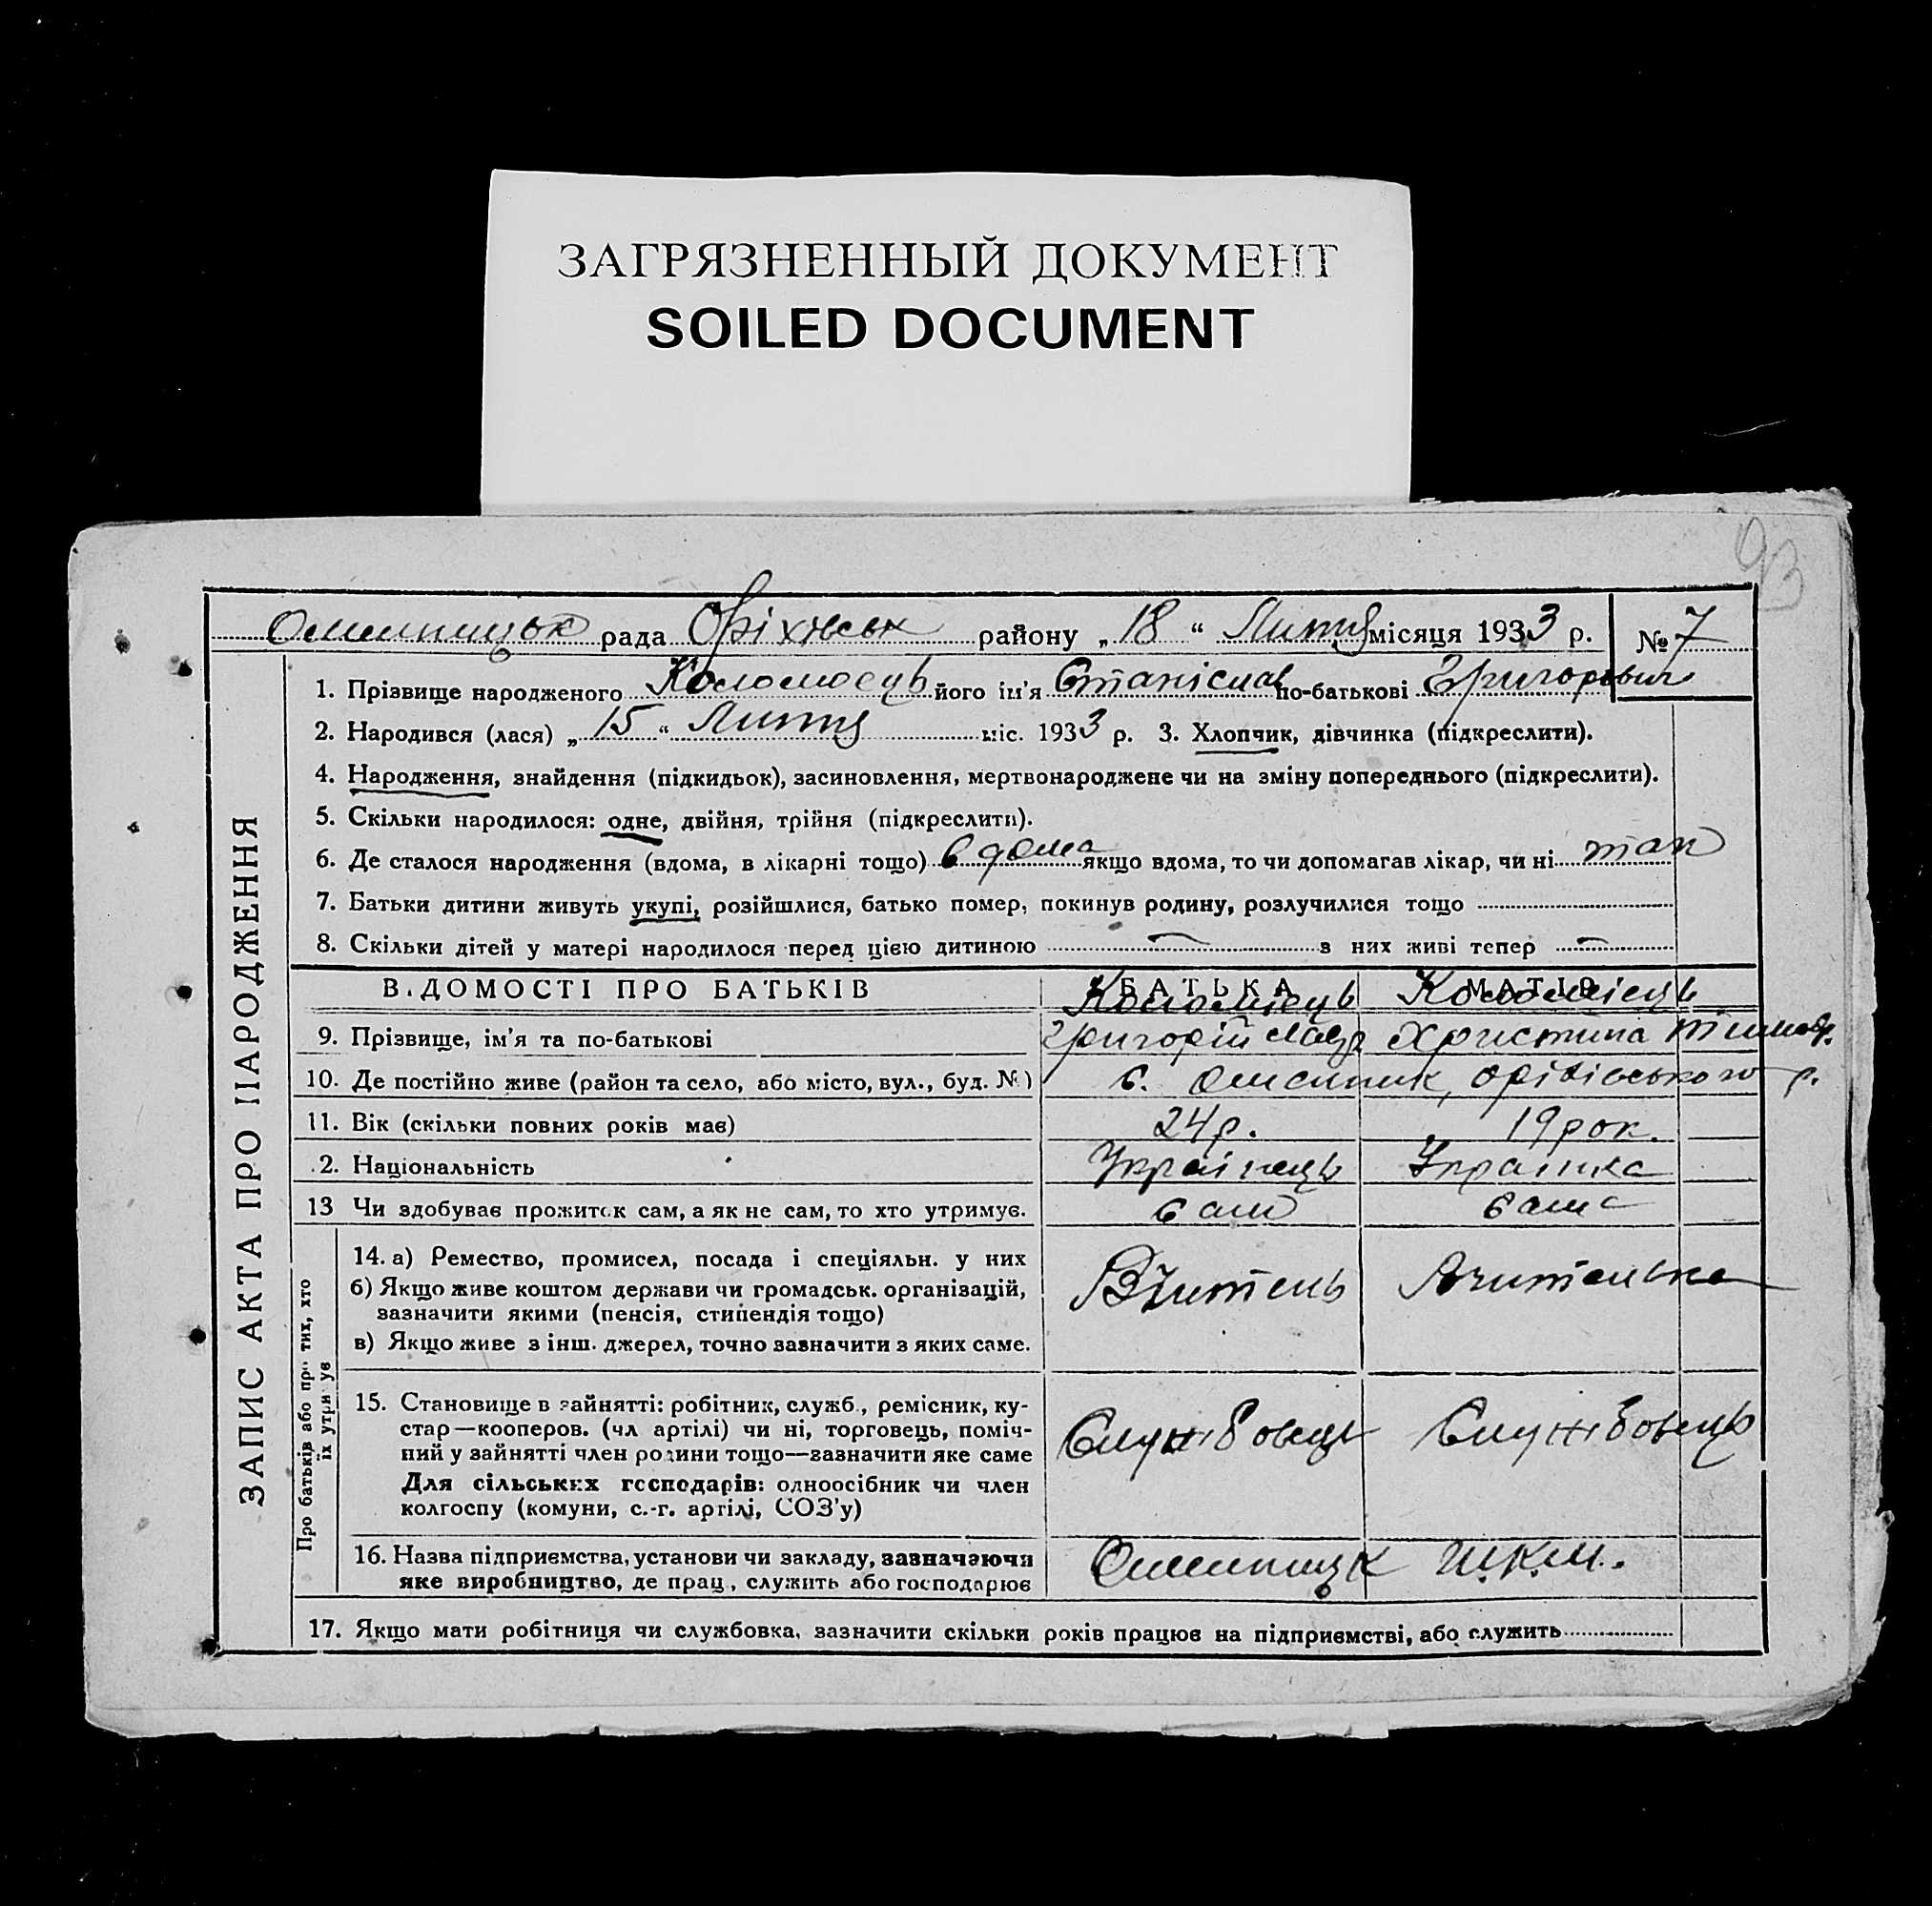 ЗАГРЯЗНЕННЫЙ ДОКУМЕНТ
SOILED DOCUMENT
93
Омельницьк рада Оріхівськ району „ 18 “ Лютня місяця 1933 р. № 7
ЗАПИС АКТА ПРО НАРОДЖЕННЯ
1. Прізвище народженого Коломоєць його ім'я Станіслав по-батькові Григорович
2. Народився (лася) „ 15 “ Лютня міс. 1933 р. 3. Хлопчик, дівчинка (підкреслити).
4. Народження, знайдення (підкидьок), засиновлення, мертвонароджене чи на зміну попереднього (підкреслити).
5. Скільки народилося: одне, двійня, трійня (підкреслити).
6. Де сталося народження (вдома, в лікарні тощо) вдома якщо вдома, то чи допомагав лікар, чи ні так
7. Батьки дитини живуть укупі, розійшлися, батько помер, покинув родину, розлучилися тощо
8. Скільки дітей у матері народилося перед цією дитиною — з них живі тепер —
ВІДОМОСТІ ПРО БАТЬКІВ БАТЬКА МАТІР
Коломієць Коломієць
9. Прізвище, ім'я та по-батькові Григорій Христина
10. Де постійно живе (район та село, або місто, вул., буд. №) с. Омельник, Оріхівського р.
11. Вік (скільки повних років має) 24 р. 19 рок.
12. Національність Українець Українка
13 Чи здобуває прожиток сам, а як не сам, то хто утримує. сам сама
Про батьків або про тих, хто їх утримує
14. а) Ремество, промисел, посада і спеціяльн. у них Вчитель Вчителька
б) Якщо живе коштом держави чи громадськ. організацій,
зазначити якими (пенсія, стипендія тощо)
в) Якщо живе з інш. джерел, точно зазначити з яких саме.
15. Становище в зайнятті: робітник, служб., ремісник, ку-
стар—кооперов. (чл артілі) чи ні, торговець, поміч- Службовець Службовець
ний у зайнятті член родини тощо—зазначити яке саме
Для сільських господарів: одноосібник чи член
колгоспу (комуни, с.-г. артілі, СОЗ'у)
16. Назва підприємства, установи чи закладу, зазначаючи Омельницьк Ш.К.М.
яке виробництво, де прац., служить або господарює
17. Якщо мати робітниця чи службовка, зазначити скільки років працює на підприємстві, або служить